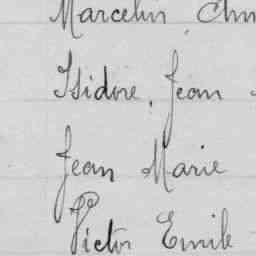 Marcelin
Isidore, Jean
Jean Marie
Victor Emile